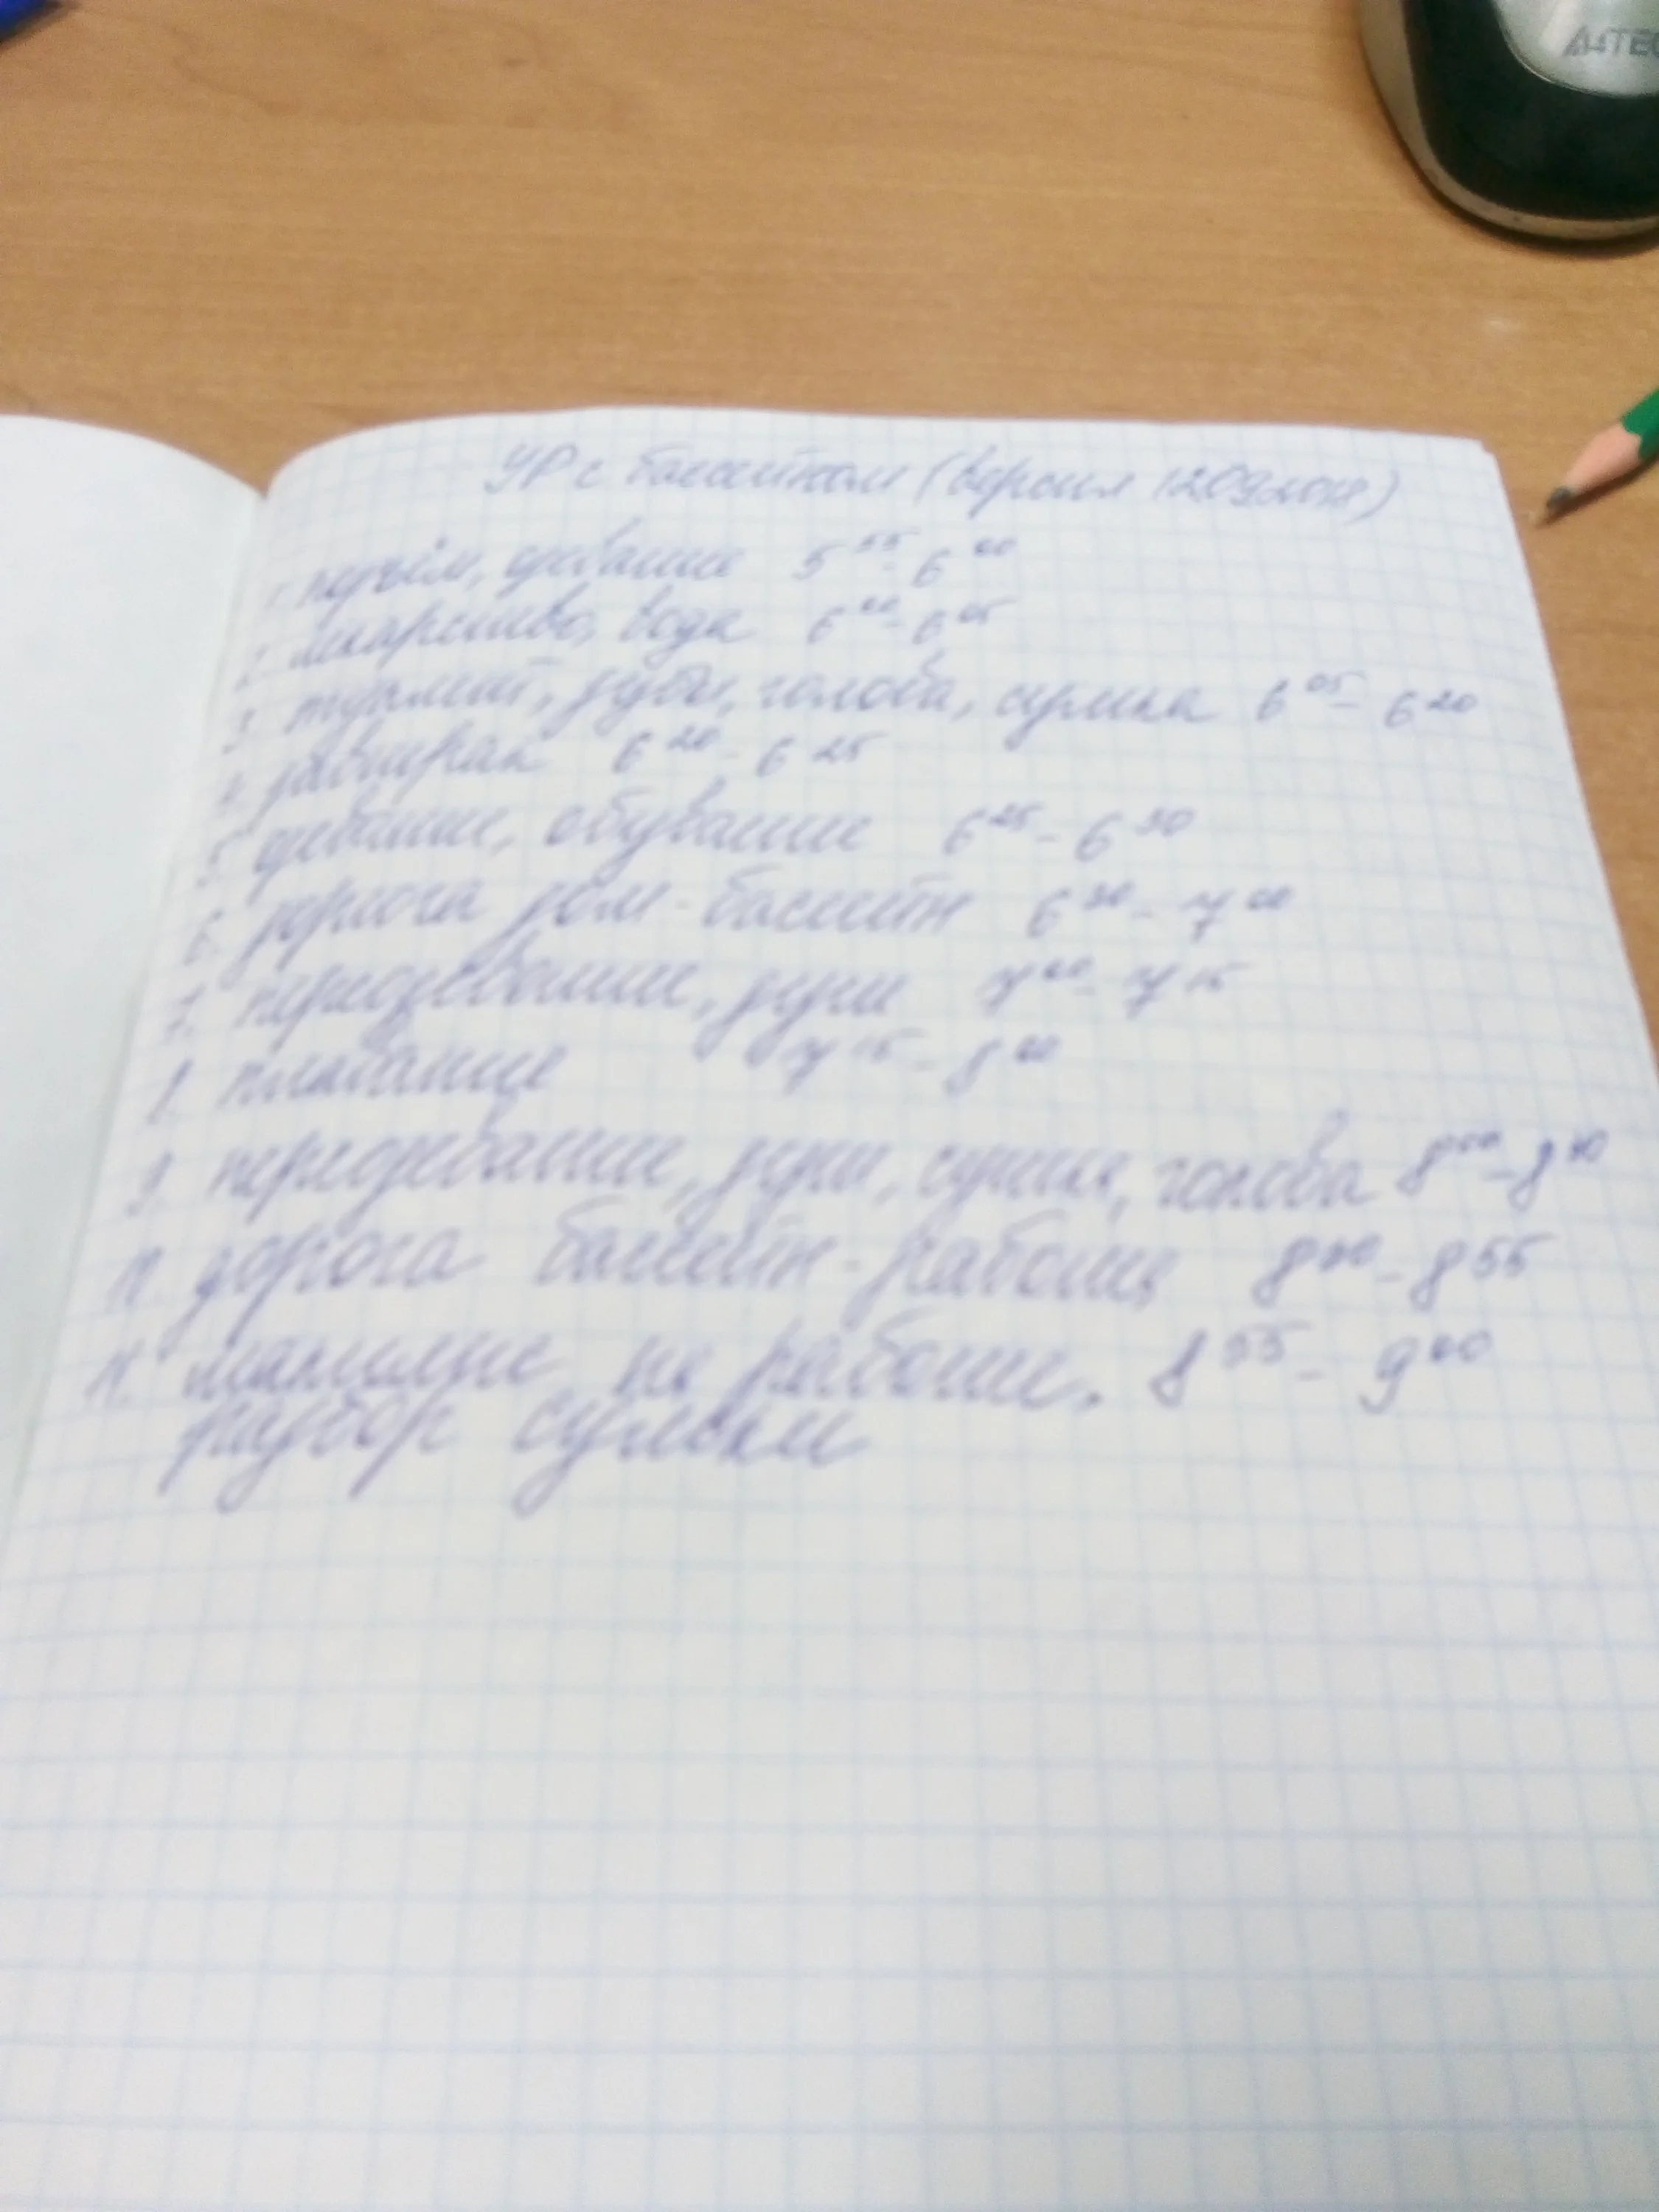 A4TEC
УР с бассейном (версия 12092018)
1. подъём, одевание 5 55 - 6 00
2. лекарство, вода 6 00 - 6 05
3. туалет, зубы, голова, сумка 6 05 - 6 20
4. завтрак 6 20 - 6 25
5. одевание, обувание 6 25 - 6 30
6. дорога дом - бассейн 6 30 - 7 00
7. переодевание, душ 7 00 - 7 15
8. плавание 7 15 - 8 00
9. переодевание, душ, сушка, голова 8 00 - 8
10. дорога бассейн - работа 8 - 8 55
11. на работе. 8 55 - 9 00
разбор сумки